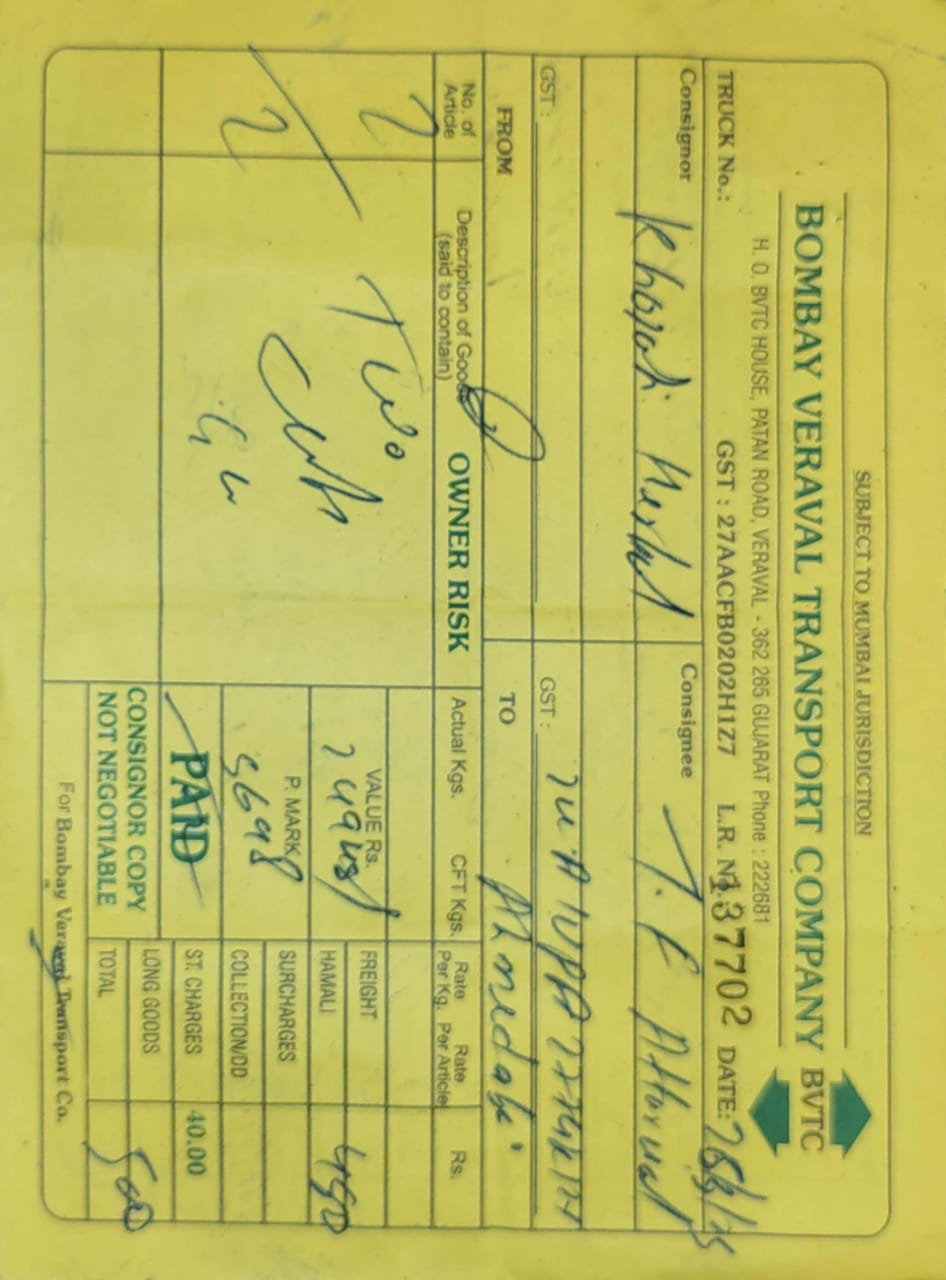 SUBJECT TO MUMBAI JURISDICTION
BOMBAY VERAVAL TRANSPORT COMPANY BVTC
H. O. BVTC HOUSE, PATAN ROAD, VERAVAL - 362 265 GUJARAT Phone : 222681
TRUCK No.: GST : 27AACFB0202H1Z7 L.R. No. 137702 DATE:
Consignor Herbal Consignee
GST : GST :
FROM TO
No. of Article Description of Goods (said to contain) OWNER RISK Actual Kgs. CFT Kgs. Rate Per Kg. Rate Per Article Rs.
2 Two
VALUE Rs. FREIGHT
HAMALI 450
P. MARK SURCHARGES
5698 COLLECTION/DD
2
PAID ST. CHARGES 40.00
CONSIGNOR COPY LONG GOODS
NOT NEGOTIABLE TOTAL 500
For Bombay Veraval Transport Co.